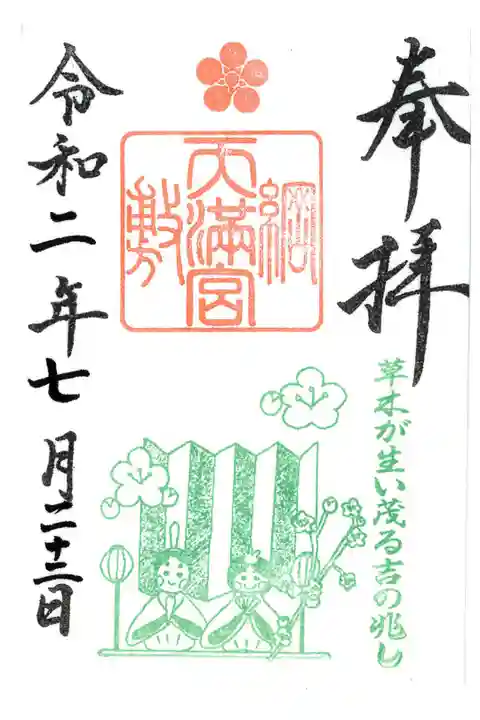 奉拝
草木が生い茂る吉の兆し
綱敷
天満宮
令和二年七月二十三日